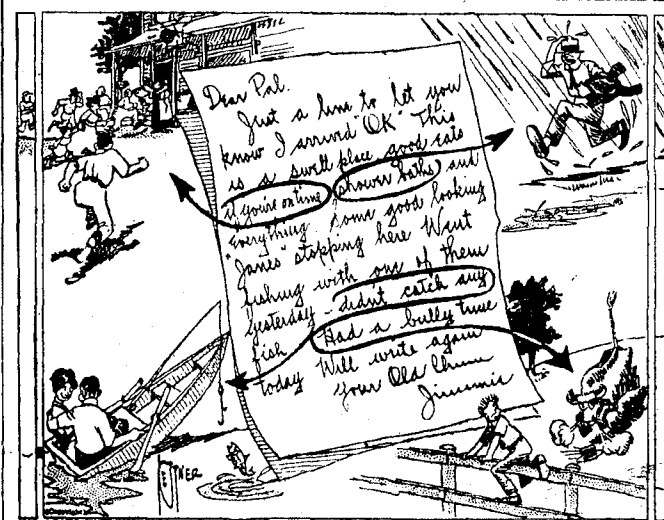 Dear Pal.
Just a line to let you
know I arrived "OK" This
is a swell place good eats
if you're on time shower baths and
everything some good looking
"Janes" stopping here Went
fishing with one of them
yesterday - didn't catch any
fish Had a bully time
today Will write again
your Old Chum
Jimmie